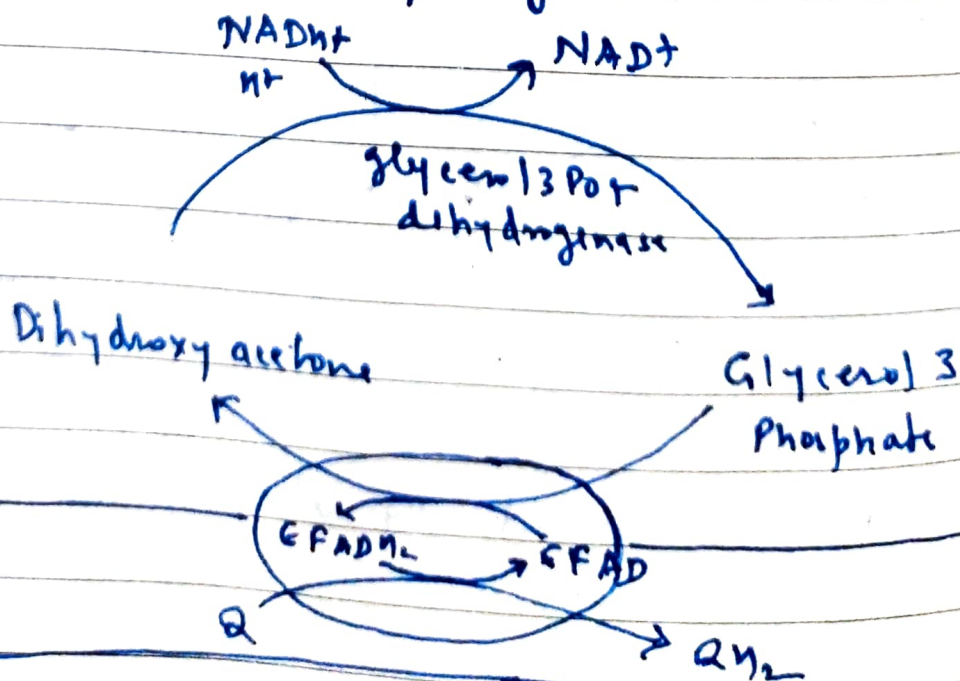 NADH+
H+
NAD+
glycerol 3 Po4
dehydrogenase
Dihydroxy acetone
Glycerol 3
Phosphate
E FADH2
E FAD
Q
QH2